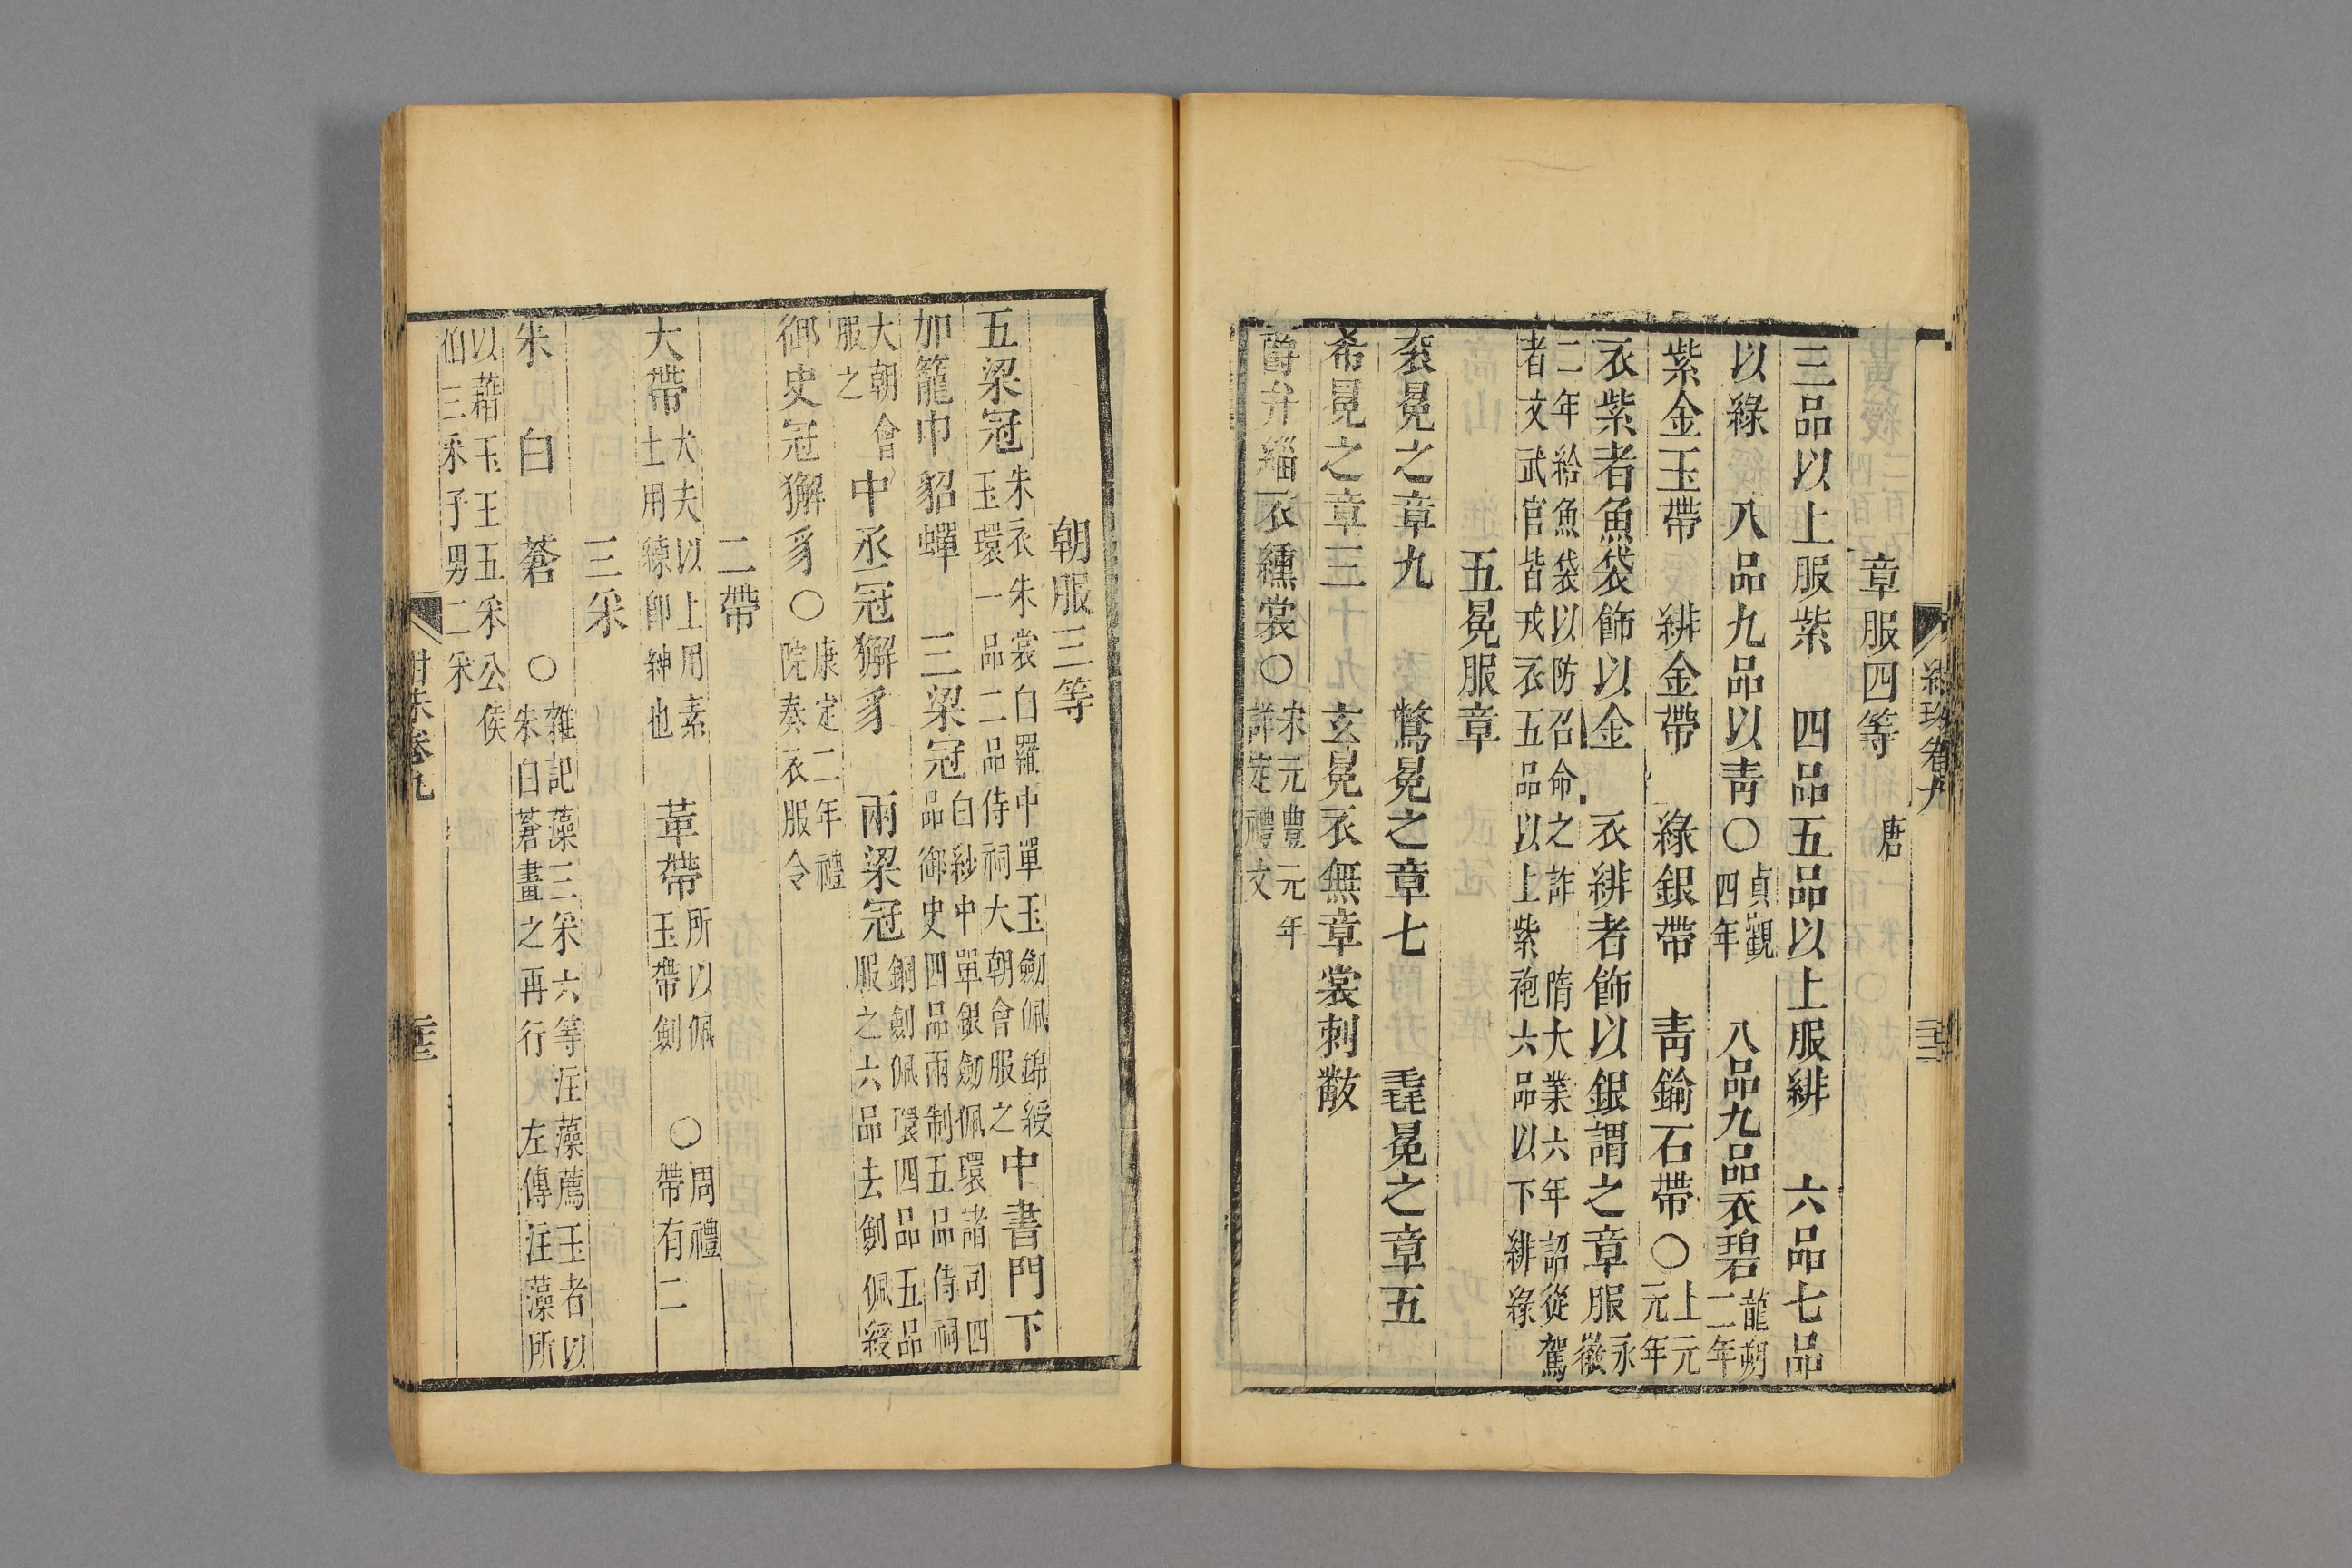 章服四等 唐
三品以上服紫 四品五品以上服緋 六品七品
以綠 八品九品以青○貞觀四年 八品九品衣碧龍朔二年
紫金玉帶 緋金帶 綠銀帶 青鍮石帶○上元元年
衣紫者魚袋飾以金 衣緋者飾以銀謂之章服永徽
二年給魚袋以防召命之詐 隋大業六年詔從駕
者文武官皆戎衣五品以上紫袍六品以下緋綠
五冕服章
袞冕之章九 鷩冕之章七 毳冕之章五
希冕之章三 玄冕衣無章裳刺黻
爵弁緇衣纁裳○宋元豐元年詳定禮文
朝服三等
五梁冠朱衣朱裳白羅中單玉劒佩錦綬玉環一品二品侍祠大朝會服之中書門下
加籠巾貂蟬 三梁冠白紗中單銀劒佩環諸司四品御史四品兩制五品侍祠
大朝會服之 中丞冠獬豸 兩梁冠銅劍佩環四品五品服之六品去劍佩綬
御史冠獬豸○康定二年禮院奏衣服令
二帶
大帶大夫以上用素士用練卽紳也 革帶所以佩玉帶劍 ○周禮帶有二
三采
朱 白 蒼 ○雜記藻三采六等注藻薦玉者以朱白蒼畫之再行 左傳注藻所
以藉玉王五采公侯
伯三采子男二采
卷九